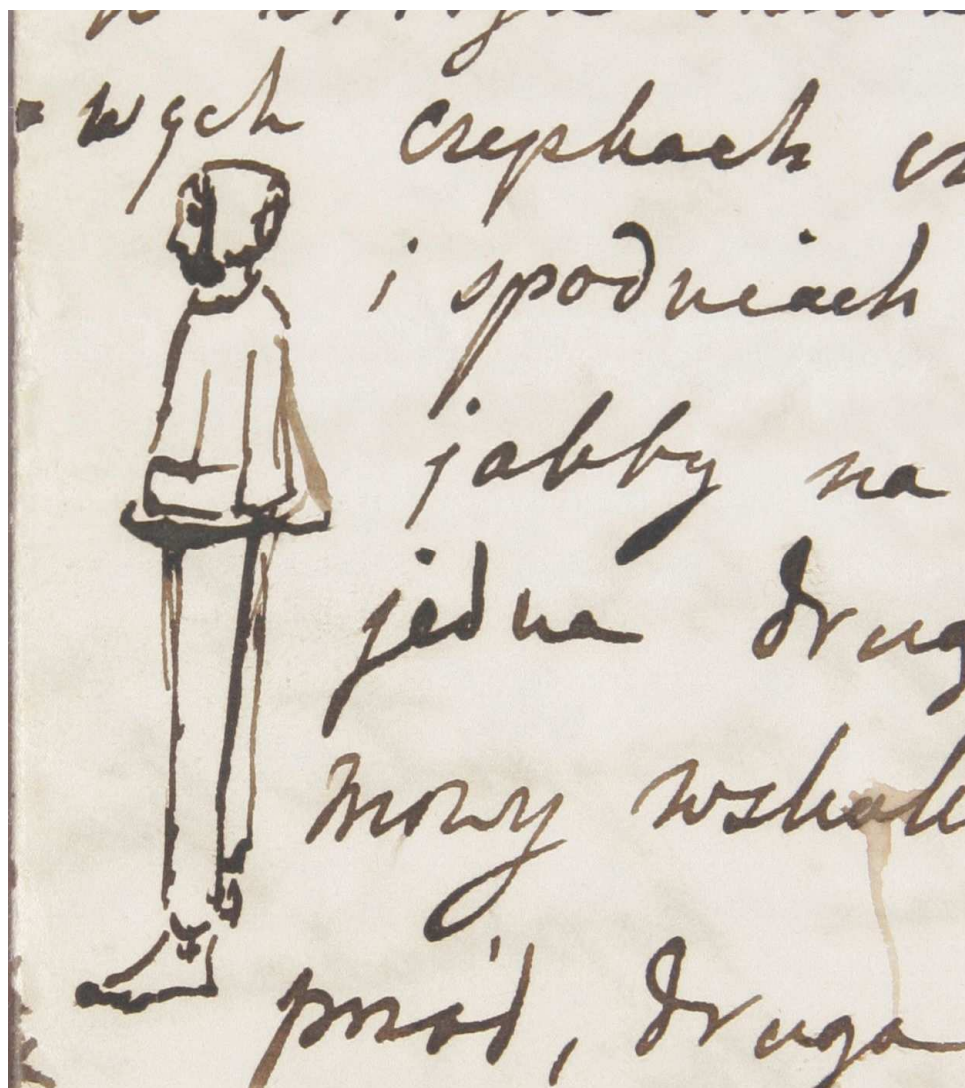 wych czepkach cz
i spodniach
jakby na
jedna drug
mowy wskak
przód, druga